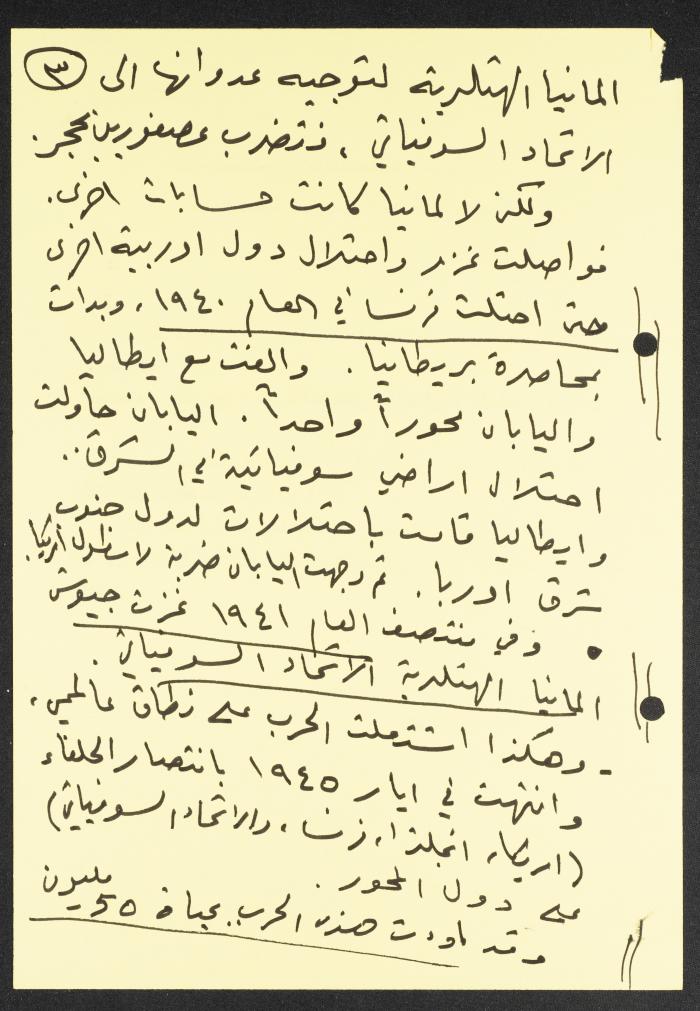 المانيا الهتلرية لتوجيه عدوانها الى ٣
الاتحاد السوفياتي ، فتضرب عصفورين بحجر .
ولكن لالمانيا كانت حسابات اخرى .
فواصلت غزو واحتلال دول اوربية اخرى
حتى احتلت فرنسا في العام ١٩٤٠ ، وبدأت
بمحاصرة بريطانيا . والفت مع ايطاليا
واليابان محوراً واحداً . اليابان حاولت
احتلال اراضي سوفياتية في الشرق ..
وايطاليا قامت باحتلالات لدول جنوب
شرق اوربا . ثم وجهت اليابان ضربة لاسطول أمريكا .
• وفي منتصف العام ١٩٤١ غزت جيوش
المانيا الهتلرية الاتحاد السوفياتي .
- وهكذا اشتعلت الحرب على نطاق عالمي ،
وانتهت في ايار ١٩٤٥ بانتصار الحلفاء
(امريكا ، انجلترا ، فرنسا ، والاتحاد السوفياتي)
على دول المحور .
وقد اودت هذه الحرب بحياة 50 مليون